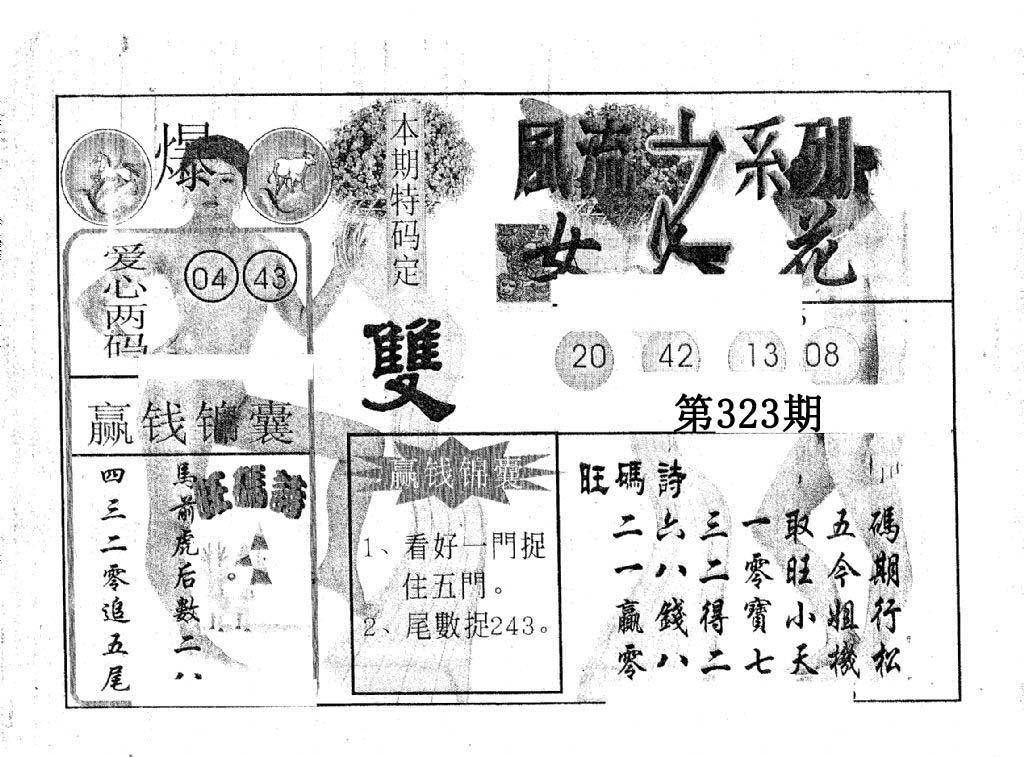 爆
爱心两码
04 43
本期特码定
雙
風流之系列
女人花
20 42 13 08
第323期
赢钱锦囊
馬前虎后数二八
四三二零追五尾
旺碼詩
赢钱锦囊
1、看好一門捉
住五門。
2、尾數捉243。
旺碼詩
二六三一取五碼
一八二零旺今期
贏錢得寶小姐行
零八二七天機松